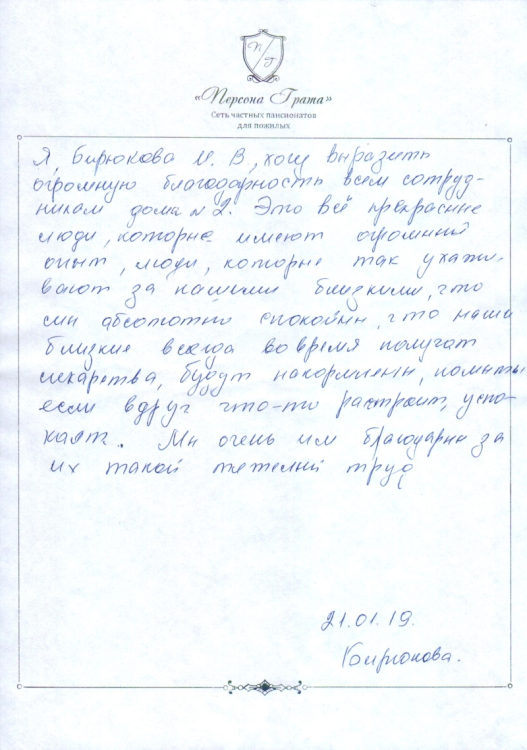 П/Г
«Персона Грата»
Сеть частных пансионатов
для пожилых
Я, Бирюкова И. В, хочу выразить
огромную благодарность всем сотруд-
никам дома №2. Это всё прекрасные
люди, которые имеют огромный
опыт, люди, которые так ухажи-
вают за нашими близкими, что
мы абсолютно спокойны, что наши
близкие всегда вовремя получат
лекарства, будут накормлены, помыты
если вдруг что-то растроит, успо-
коят. Мы очень им благодарны за
их такой тяжелый труд
21.01.19.
Бирюкова.